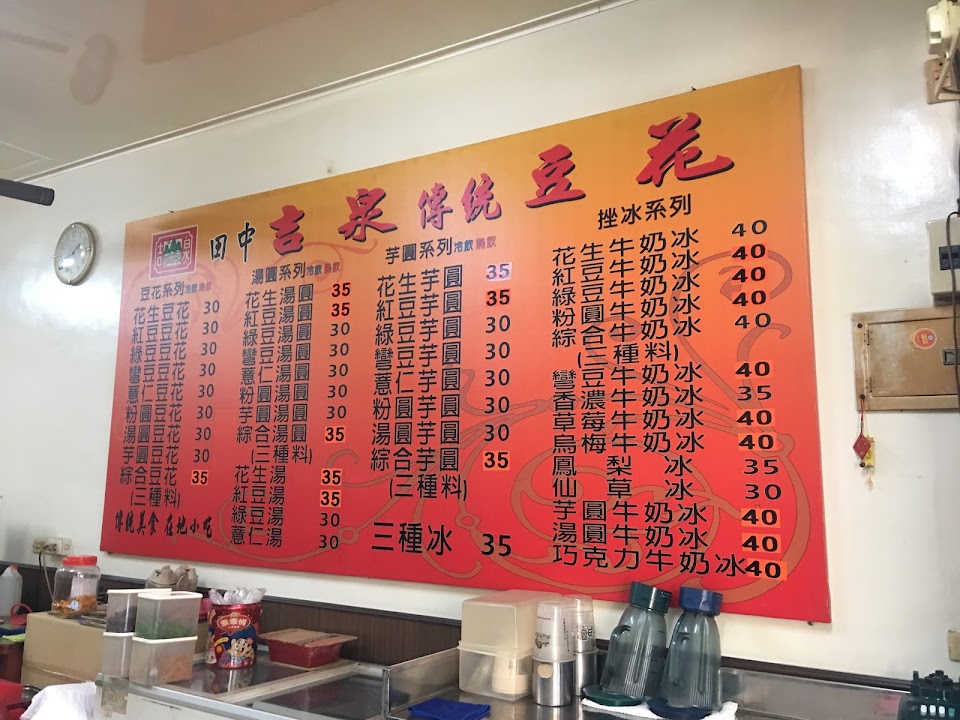 田中 吉泉 傳統 豆花
吉泉
豆花系列 冷飲 熱飲
花生豆花 30
紅豆豆花 30
綠豆豆花 30
彎豆豆花 30
薏仁豆花 30
粉圓豆花 30
湯圓豆花 30
芋圓豆花 30
綜合豆花 35
(三種料)
傳統美食 在地小吃
湯圓系列 冷飲 熱飲
花生湯圓 35
紅豆湯圓 35
綠豆湯圓 30
彎豆湯圓 30
薏仁湯圓 30
粉圓湯圓 30
芋圓湯圓 30
綜合湯圓 35
(三種料)
花生湯 35
紅豆湯 35
綠豆湯 30
薏仁湯 30
芋圓系列 冷飲 熱飲
花生芋圓 35
紅豆芋圓 35
綠豆芋圓 30
彎豆芋圓 30
薏仁芋圓 30
粉圓芋圓 30
湯圓芋圓 30
綜合芋圓 35
(三種料)
三種冰 35
挫冰系列
花生牛奶冰 40
紅豆牛奶冰 40
綠豆牛奶冰 40
粉圓牛奶冰 40
綜合牛奶冰 40
(三種料)
彎豆牛奶冰 40
香濃牛奶冰 35
草莓牛奶冰 40
烏梅牛奶冰 40
鳳梨冰 35
仙草冰 30
芋圓牛奶冰 40
湯圓牛奶冰 40
巧克力牛奶冰 40